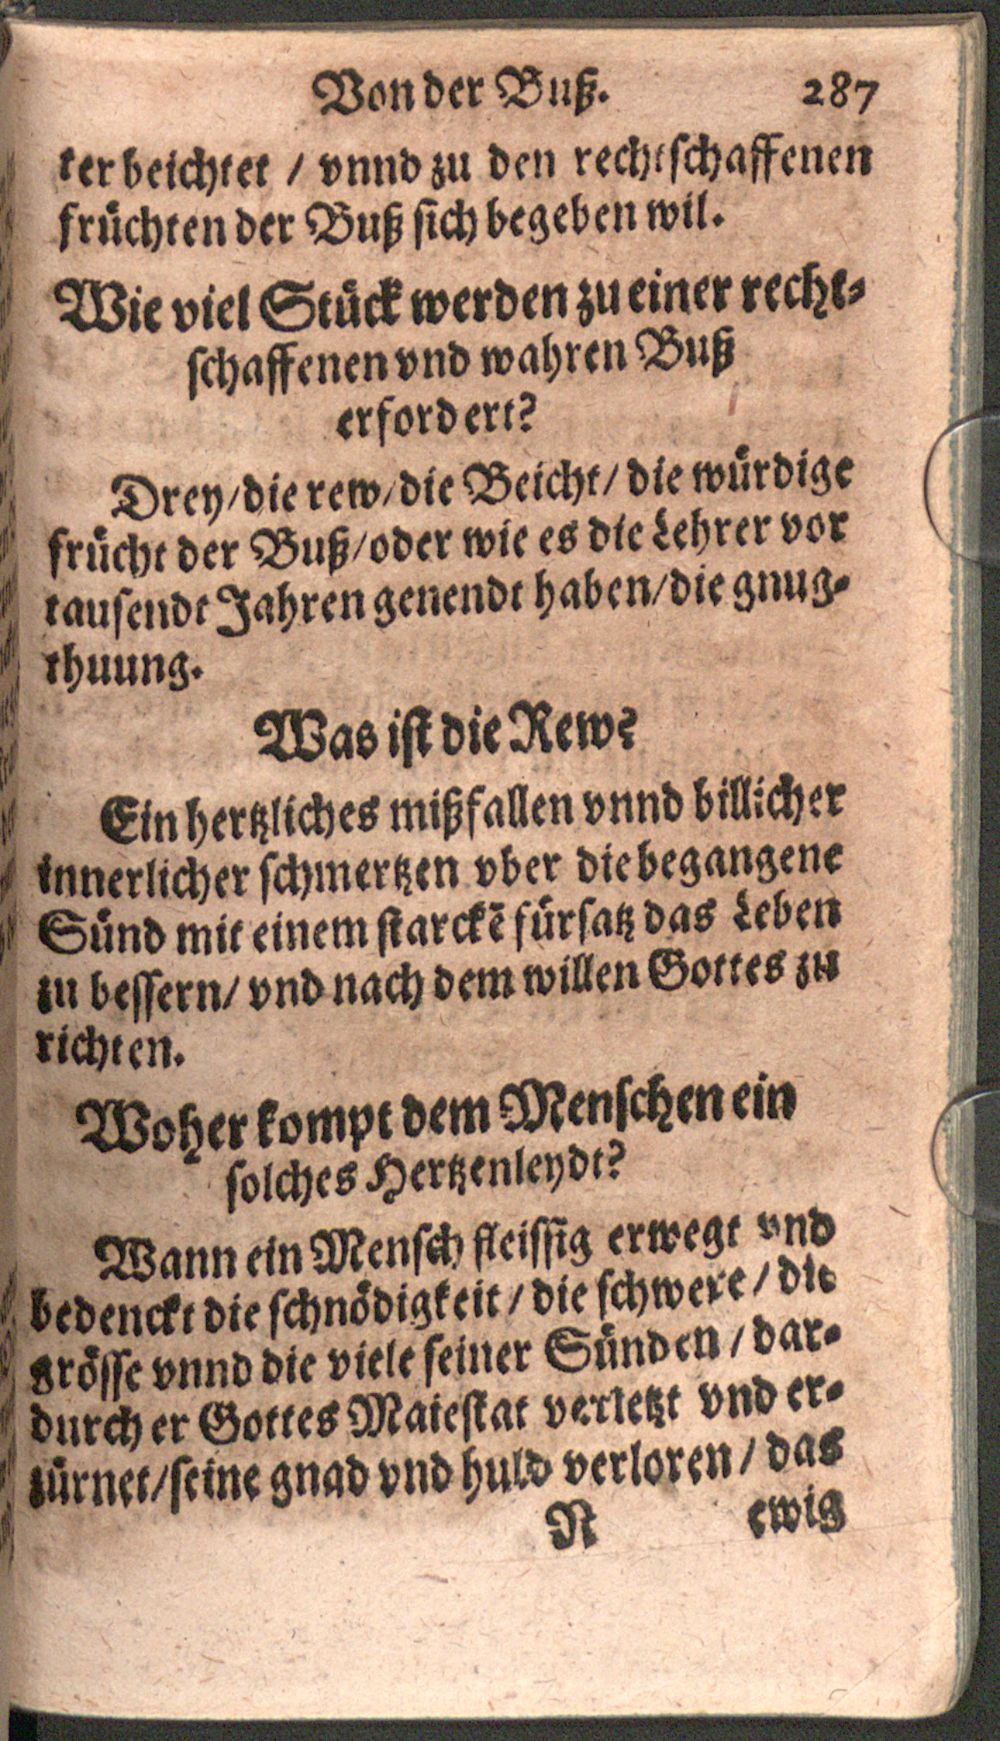 Von der Buß. 287
ter beichtet / vnnd zu den rechtschaffenen
früchten der Buß sich begeben wil.
Wie viel Stück werden zu einer recht-
schaffenen vnd wahren Buß
erfordert?
Drey/die rew/die Beicht/ die würdige
frücht der Buß/oder wie es die Lehrer vor
tausendt Jahren genendt haben/die gnug-
thuung.
Was ist die Rew?
Ein hertzliches mißfallen vnnd billicher
innerlicher schmertzen vber die begangene
Sünd mit einem starckē fürsatz das Leben
zu bessern/ vnd nach dem willen Gottes zu
richten.
Woher kompt dem Menschen ein
solches Hertzenleydt?
Wann ein Mensch fleissig erwegt vnd
bedenckt die schnödigkeit / die schwere / die
grösse vnnd die viele seiner Sünden / dar-
durch er Gottes Maiestat verletzt vnd er-
zürnet/seine gnad vnd huld verloren / das
N ewig